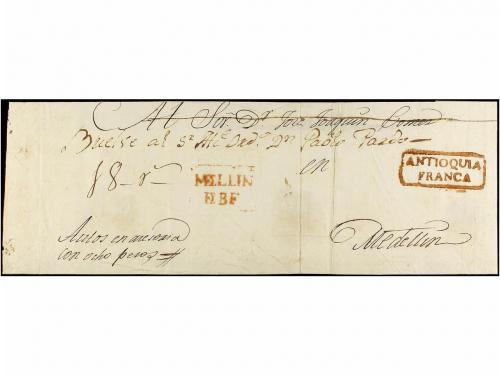 Al Sor. Dr. José Joaquin Gomez
Buelve al Sr. Alce. Ord. Dn Pablo Pardo
18 rs
en
MELLIN
DEBE
ANTIOQUIA
FRANCA
Autos en
con ocho pesos
Medellin